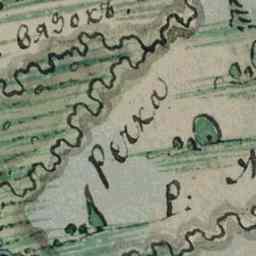 вязокъ.
Речка
Р: